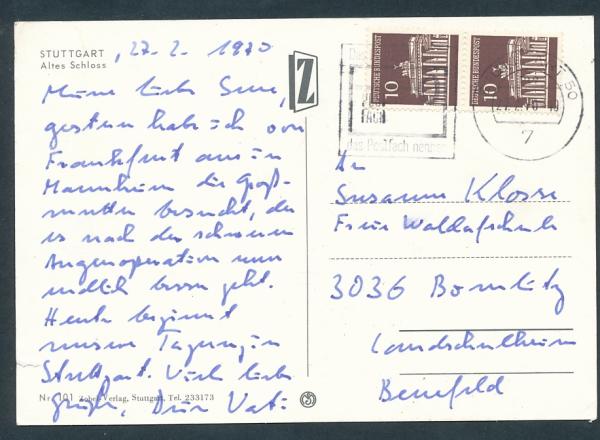 STUTTGART
Altes Schloss
, 27. 2. 1970
Meine liebe Suse,
gestern hab ich von
Frankfurt aus in
Mannheim die Groß-
mutter besucht, der
es nach der schweren
Augenoperation nun
endlich besser geht.
Heute beginnt
unsere Tagung in
Stuttgart. Viele liebe
Grüße, Dein Vati
Nr. 101 Zobel-Verlag, Stuttgart, Tel. 233173
Z
DEUTSCHE BUNDESPOST
10
DEUTSCHE BUNDESPOST
10
FACH
das Postfach nennen
50
7
An
Susanne Klosse
Freie Waldorfschule
3036 Bomlitz
Landschulheim
Benefeld